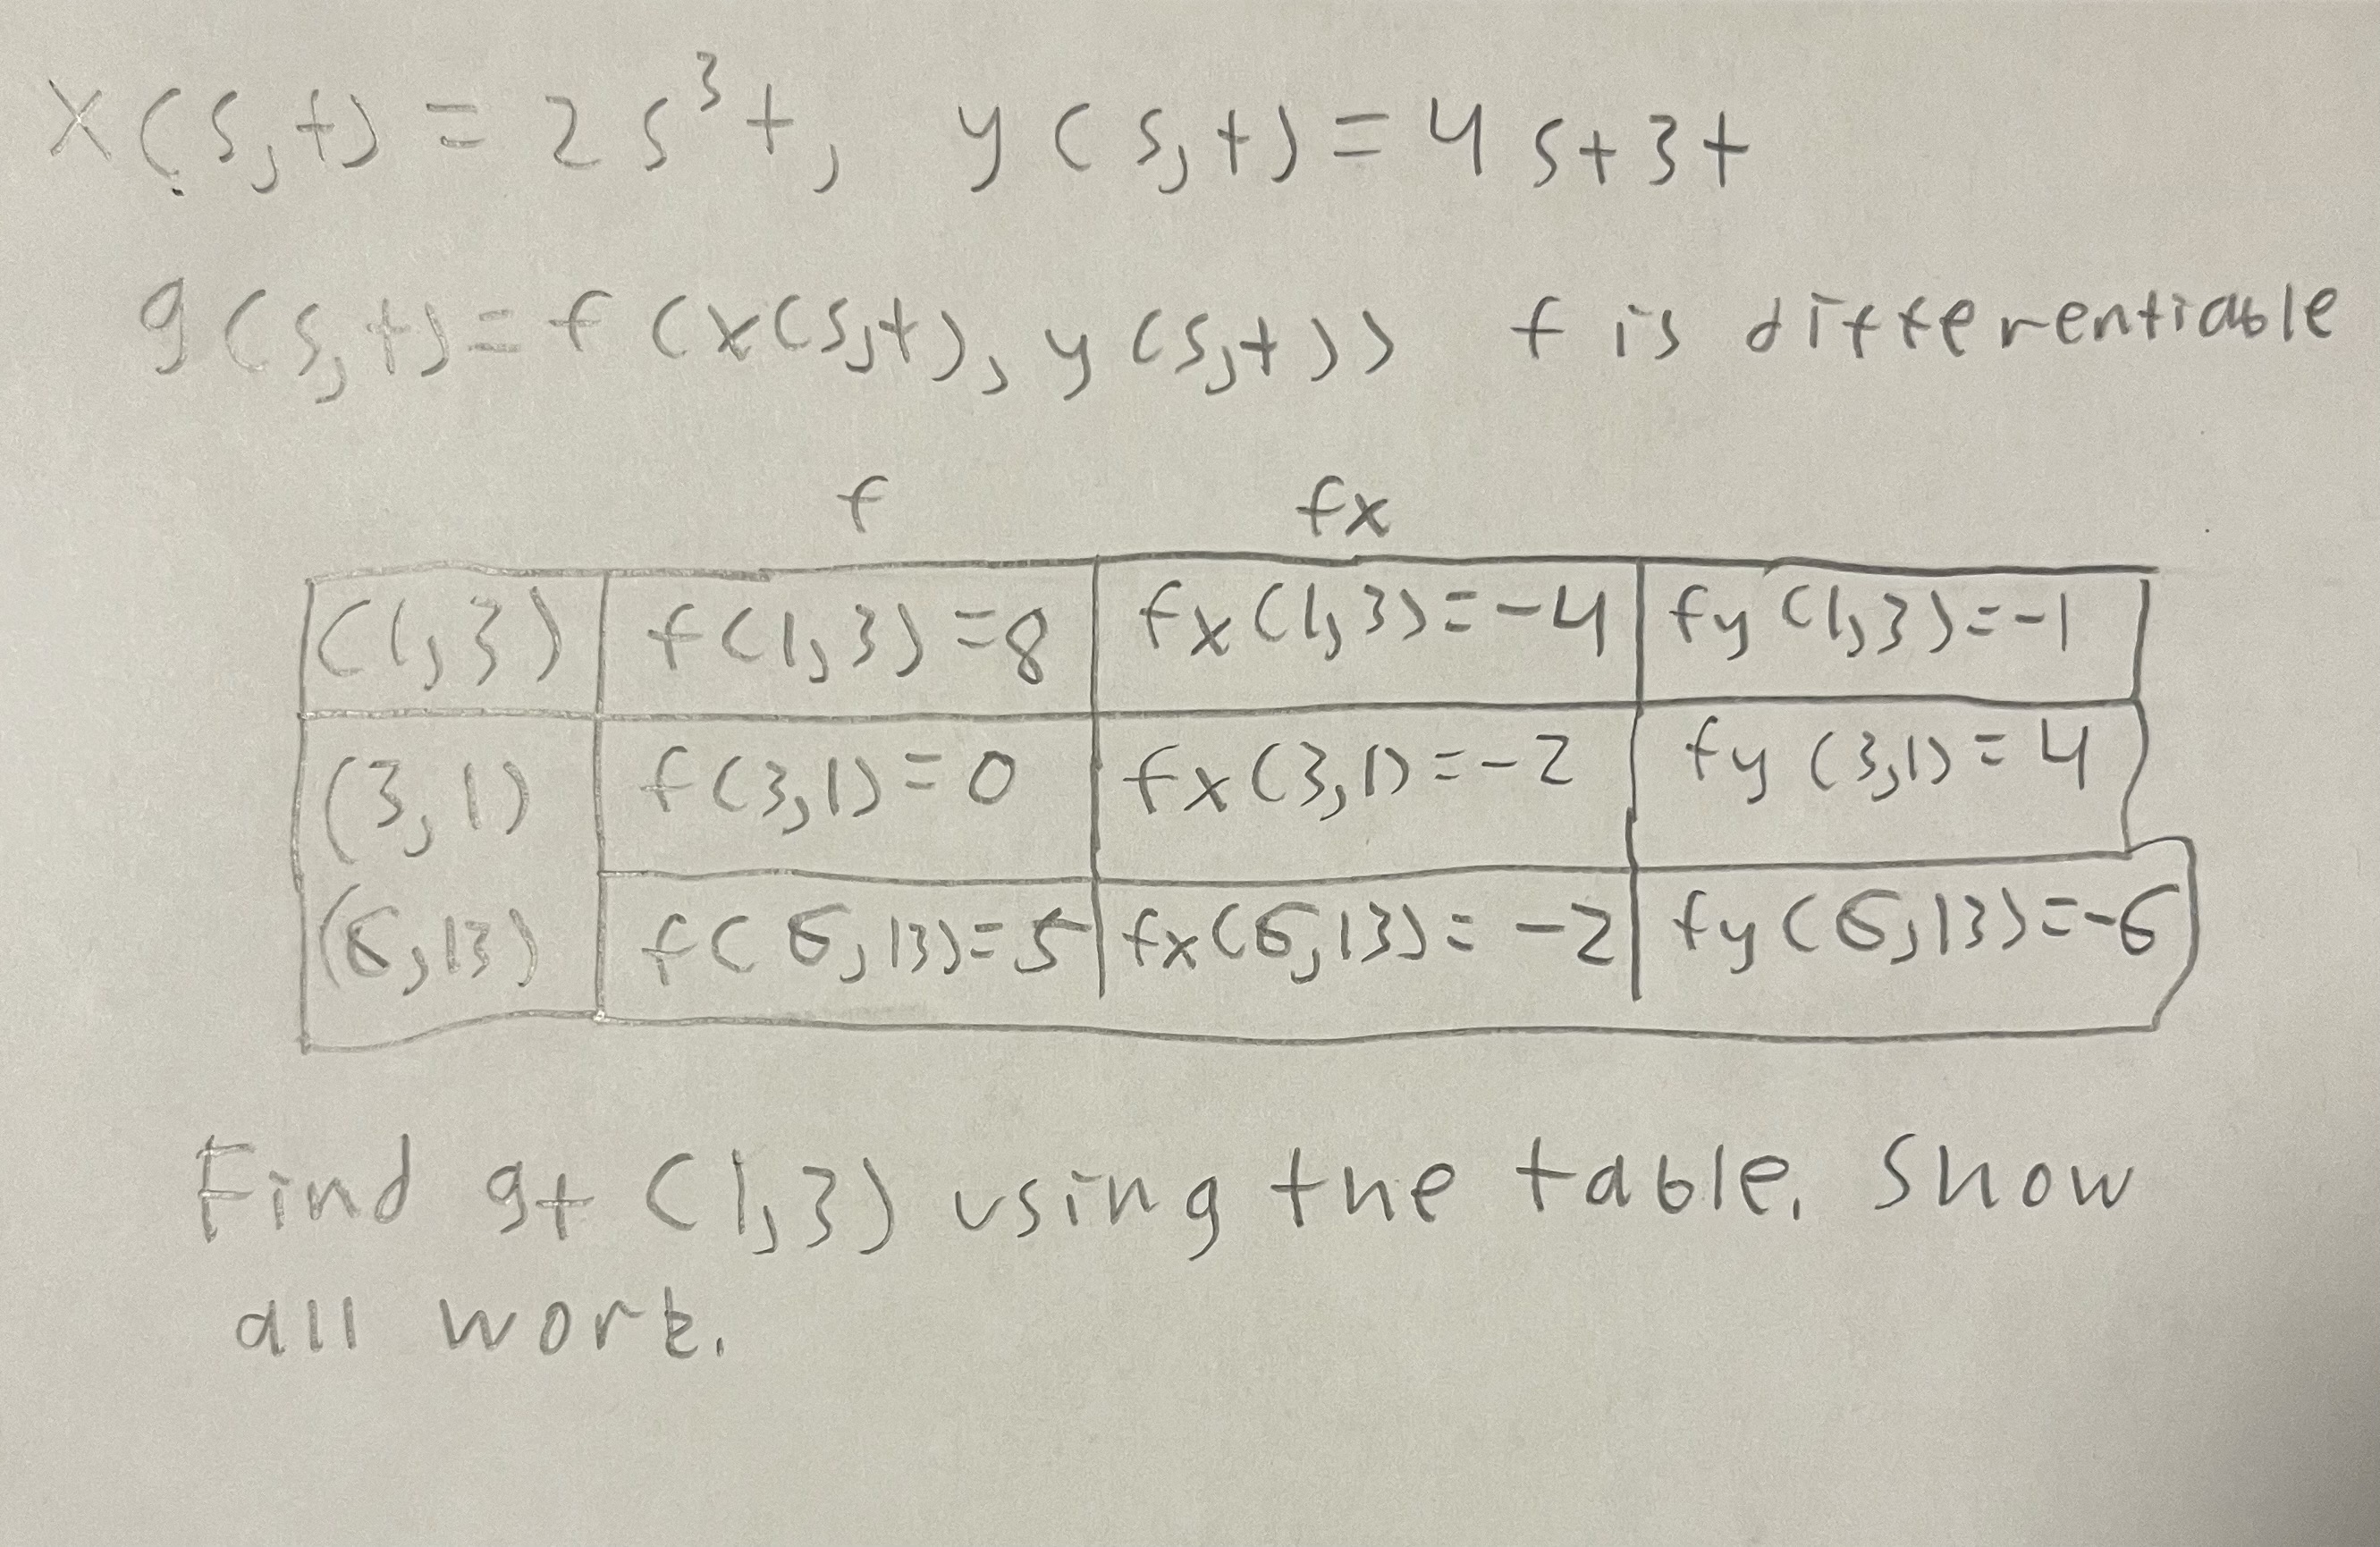 x(s,t) = 2s³t, y(s,t) = 4s+3t
g(s,t) = f(x(s,t), y(s,t)) f is differentiable
f fx
(1,3) f(1,3)=8 fx(1,3)=-4 fy(1,3)=-1
(3,1) f(3,1)=0 fx(3,1)=-2 fy(3,1)=4
(6,13) f(6,13)=5 fx(6,13)=-2 fy(6,13)=-6
Find gt (1,3) using the table. Show
all work.